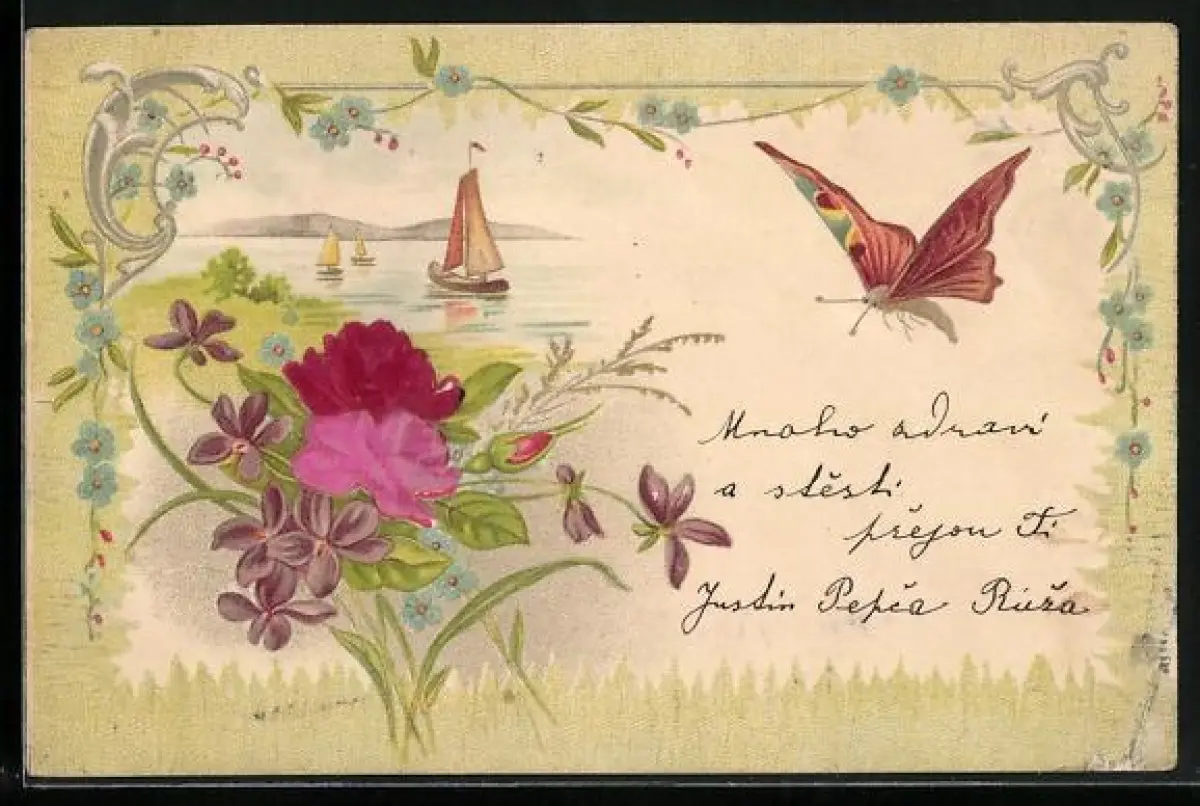 Mnoho zdraví
a stěsti
přejou Ti
Justin Pepča Růža